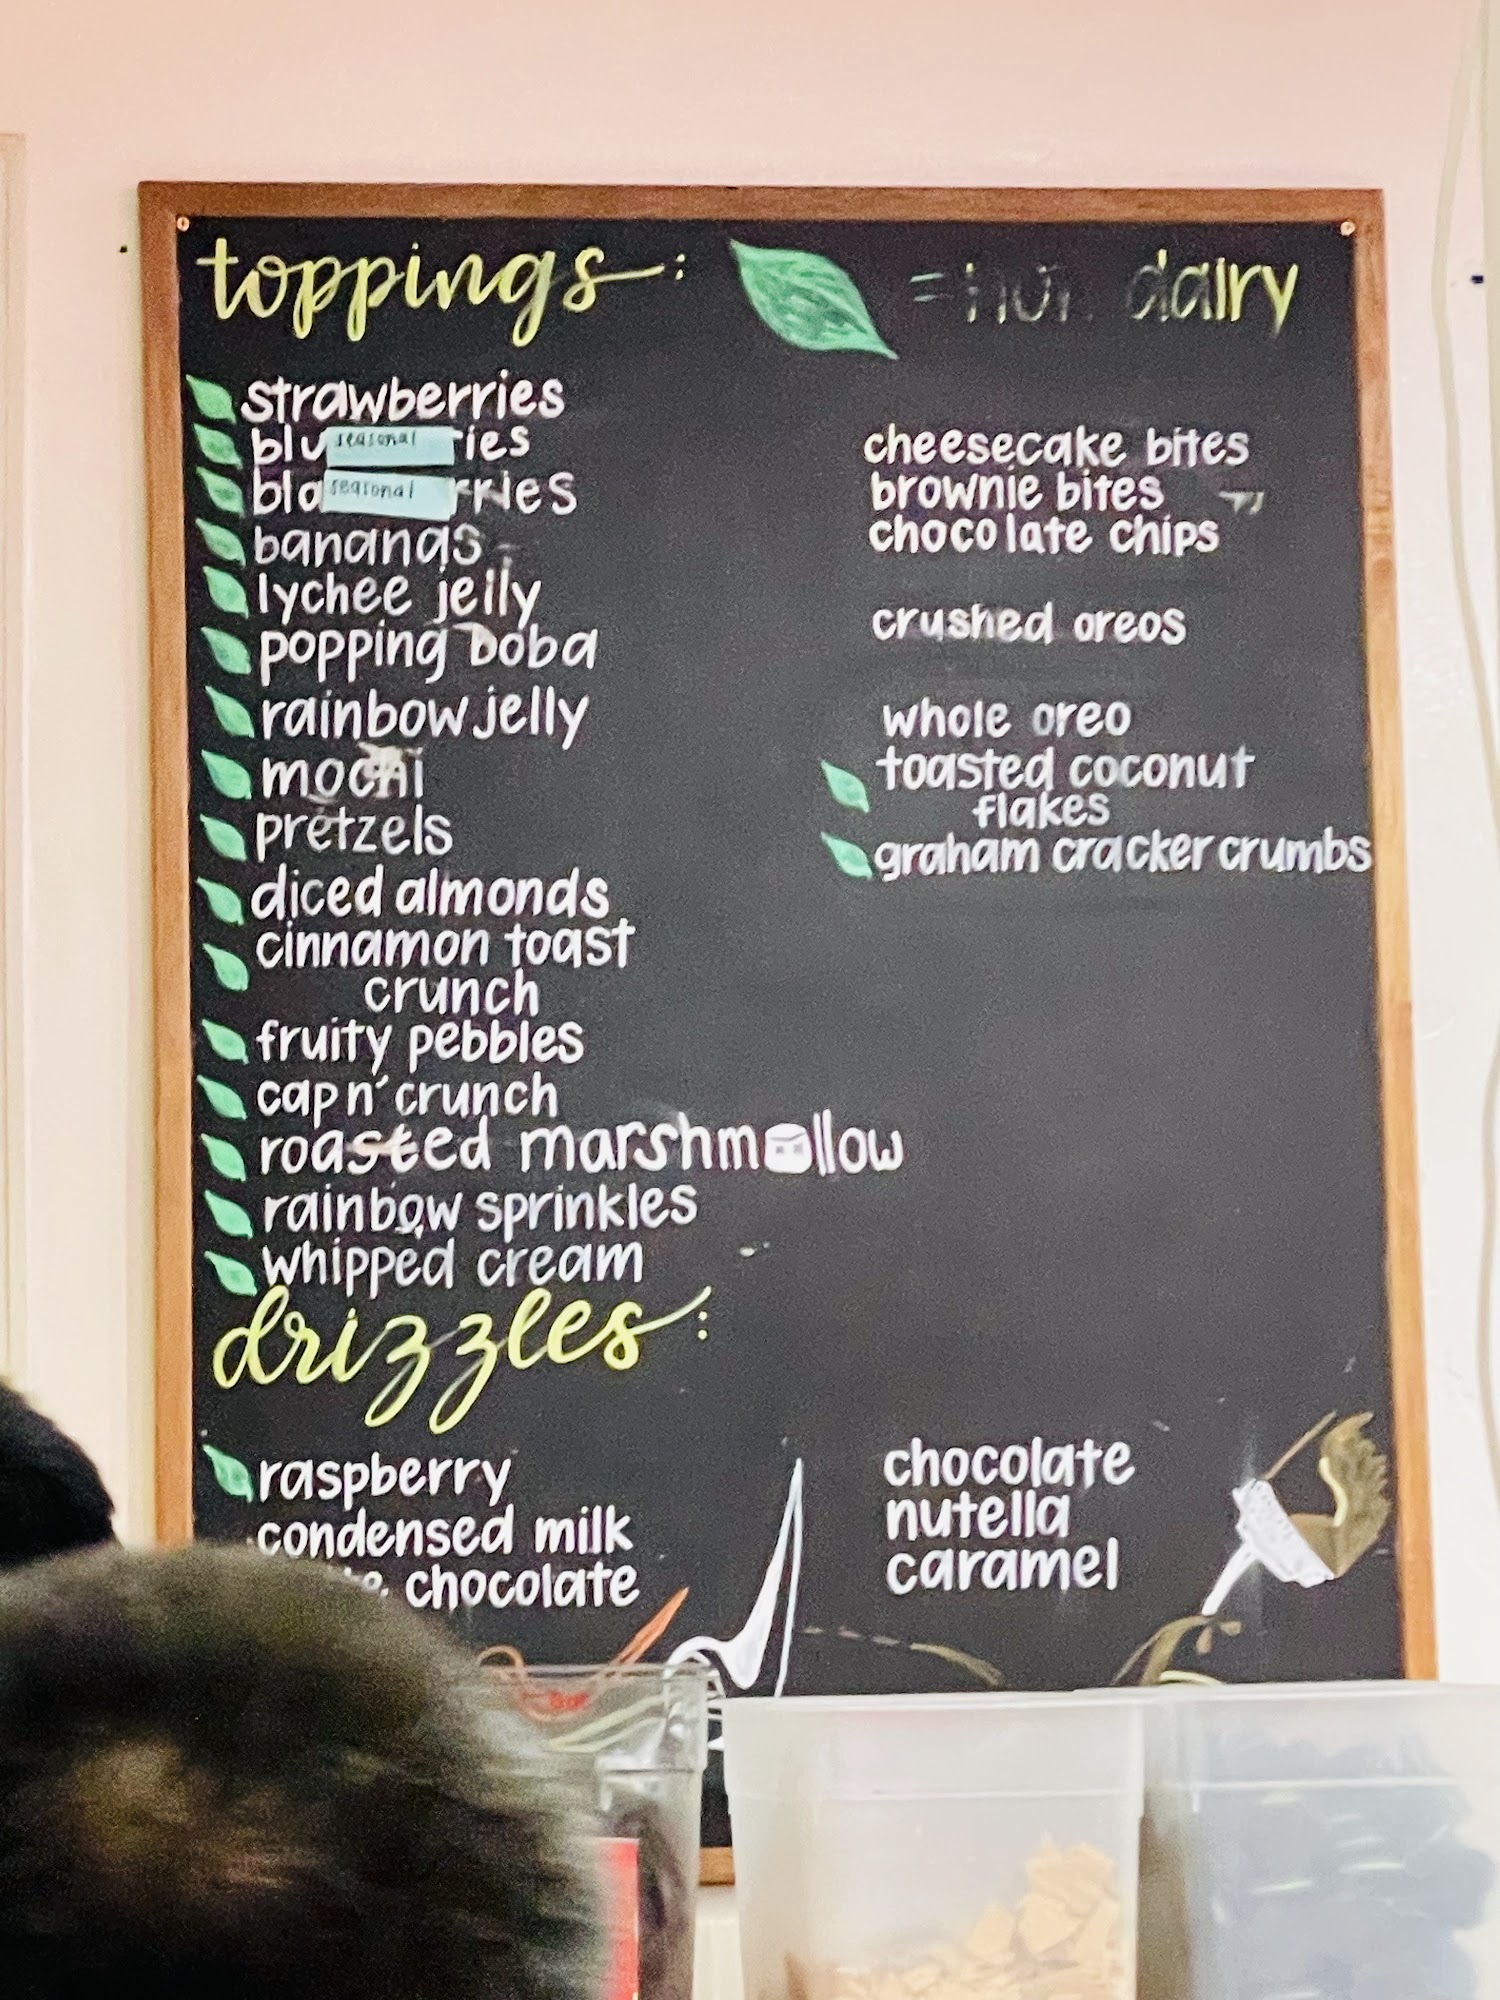 toppings:
= non dairy
strawberries
blu seasonal ies
bla seasonal rries
bananas
lychee jelly
popping boba
rainbow jelly
mochi
pretzels
diced almonds
cinnamon toast
crunch
fruity pebbles
cap n' crunch
roasted marshmallow
rainbow sprinkles
whipped cream
cheesecake bites
brownie bites
chocolate chips
crushed oreos
whole oreo
toasted coconut
flakes
graham cracker crumbs
drizzles:
raspberry
condensed milk
chocolate
chocolate
nutella
caramel